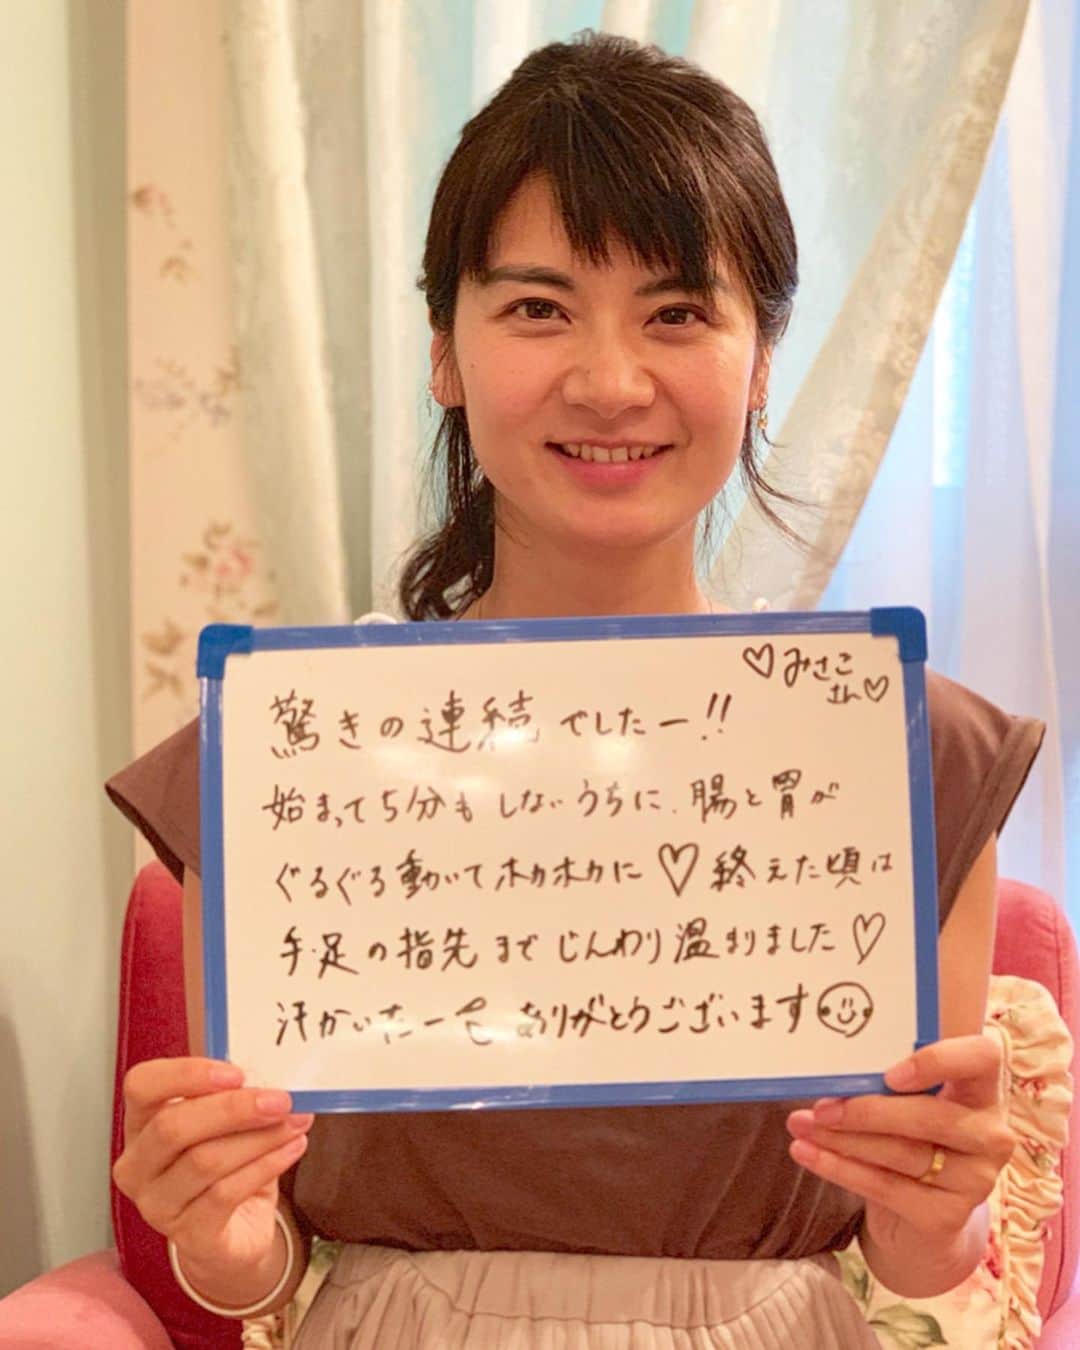 ♡みさこ
さん♡
驚きの連続でしたー!!
始まって5分もしないうちに、腸と胃が
ぐるぐる動いてホカホカに♡終えた頃は
手・足の指先までじんわり温まりました♡
汗かいたー ありがとうございます